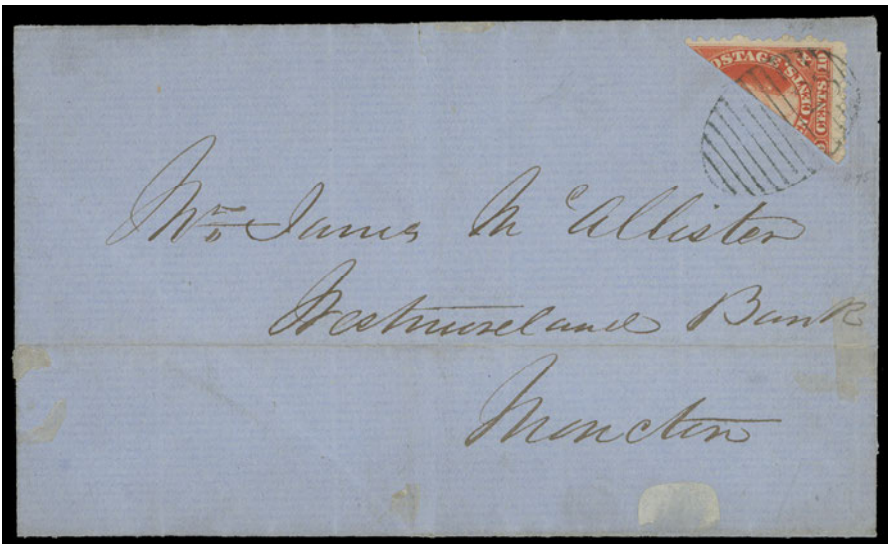 OSTAGE
TEN CENTS
CENTS 10
Mr. James McAllister
Westmoreland Bank
Moncton